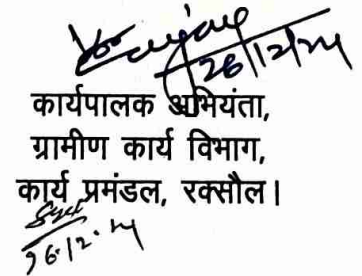 26/12/24
कार्यपालक अभियंता,
ग्रामीण कार्य विभाग,
कार्य प्रमंडल, रक्सौल।
26.12.24